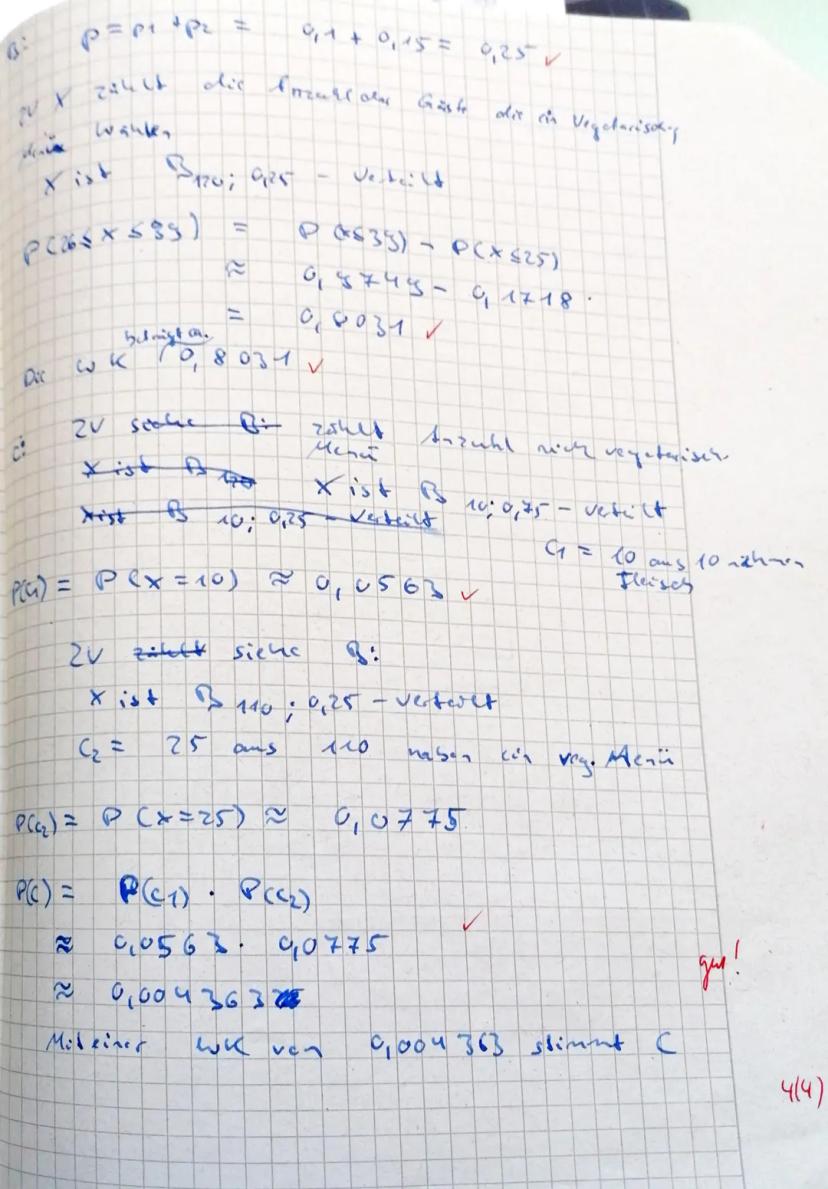 B: p = p1 + p2 = 0,1 + 0,15 = 0,25 ✓
ZV X zählt die Anzahl der Gäste die ein Vegetarisches
Menü wählen
X ist B120; 0,25 - verteilt
P(26 ≤ X ≤ 39) = P(X≤39) - P(X≤25)
≈ 0,9749 - 0,1718
= 0,8031 ✓
Die WK beträgt ca. 0,8031 ✓
C: ZV siehe B: zählt Anzahl nich vegetarisch
Menü
X ist B 120 X ist B 10; 0,75 - verteilt
X ist B 10; 0,25 - verteilt
C1 = 10 aus 10 nehmen
Fleisch
P(C1) = P(X = 10) ≈ 0,0563 ✓
ZV zählt siehe B:
X ist B 110; 0,25 - verteilt
C2 = 25 aus 110 haben ein veg. Menü
P(C2) = P(X=25) ≈ 0,0775
P(C) = P(C1) · P(C2)
✓
≈ 0,0563 · 0,0775
gut!
≈ 0,004363
Mit einer WK von 0,004363 stimmt C
4(4)